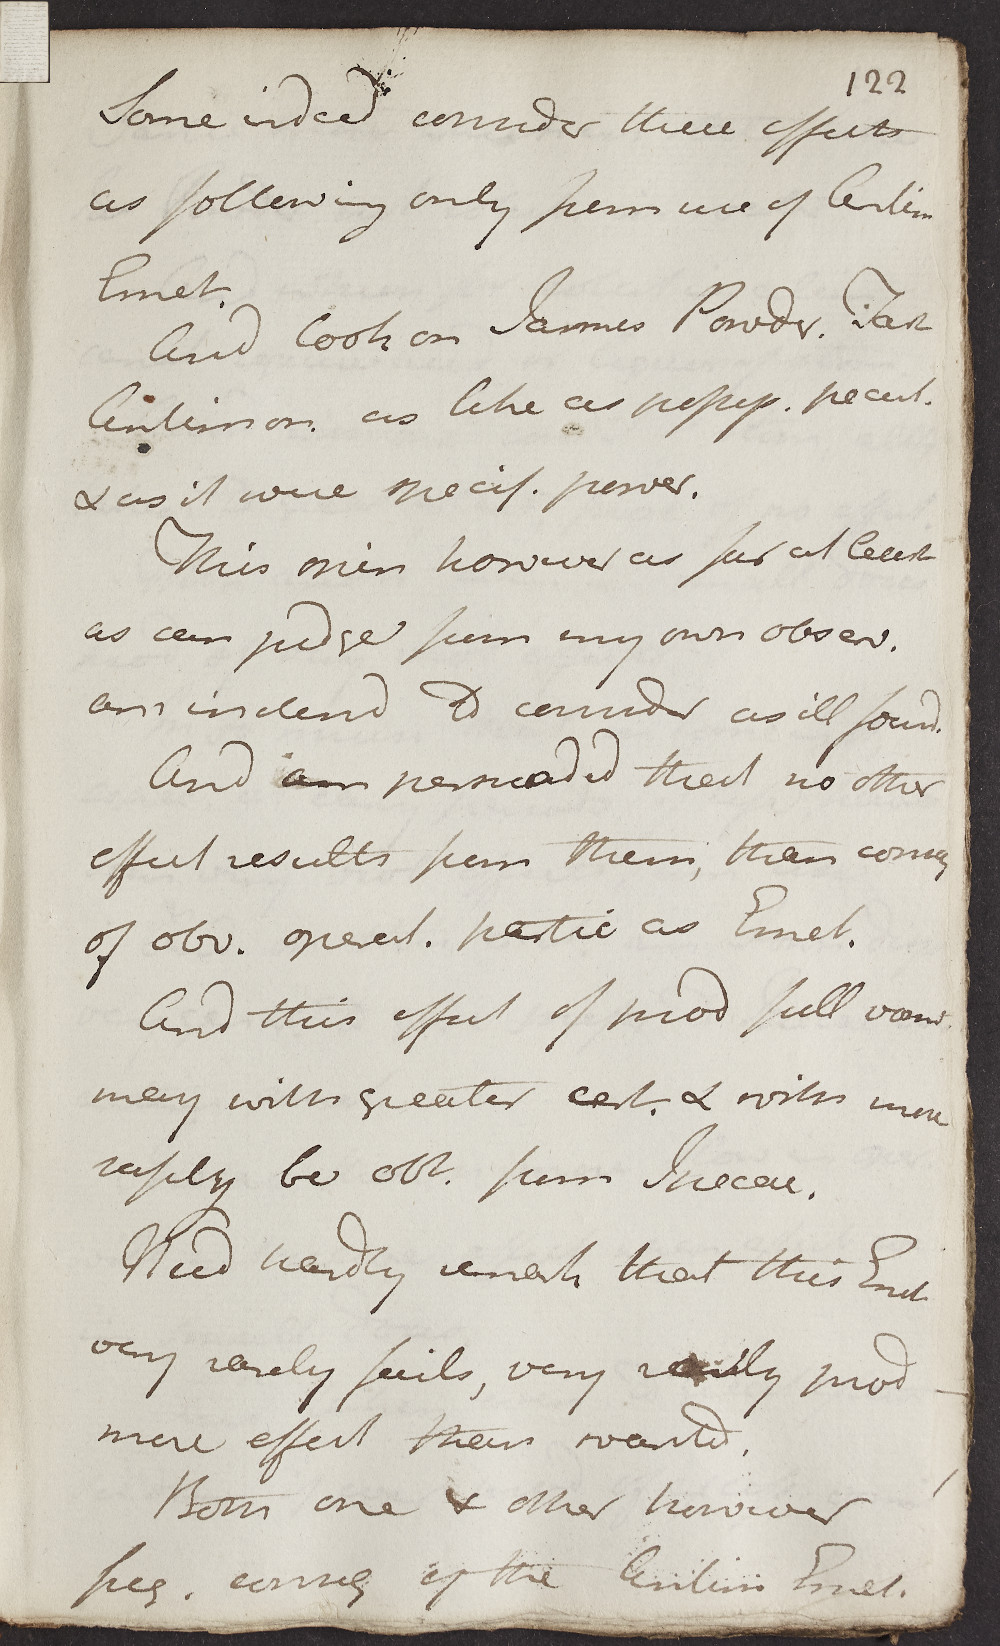 122
Some indeed consider these effects
as following only from use of Antim
Emet.
And look on James Powder. Tart
Antimon. as like as possess. pecul.
& as it were specif. power.
This opin however as far at least
as can judge from my own observ.
am inclend to consider as ill found.
And am persuaded that no other
effect results from them, than conseq
of obv. operat. partic as Emet.
And this effect of prod full vomit
may with greater cert. & with more
safety be obt. from Ipecac.
Need hardly remark that this Emet
very rarely fails, very rarely prod
more effect than wanted.
Both one & other however
freq. conseq of the Antim Emet.